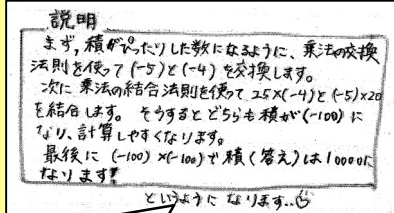 説明
まず,積がぴったりした数になるように、乗法の交換
法則を使って(-5)と(-4)を交換します。
次に乗法の結合法則を使って25×(-4)と(-5)×20
を結合します。そうするとどちらも積が(-100)に
なり、計算しやすくなります。
最後に(-100)×(-100)で積(答え)は10000に
なります!
というようになります..